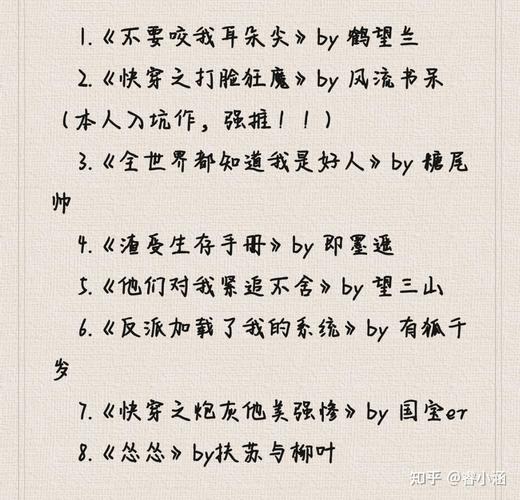 1.《不要咬我耳朵尖》by 鹤望兰
2.《快穿之打脸狂魔》by 风流书呆
(本人入坑作，强推！！)
3.《全世界都知道我是好人》by 糖尾
帅
4.《渣受生存手册》by 即墨遥
5.《他们对我紧追不舍》by 望三山
6.《反派加载了我的系统》by 有狐千
岁
7.《快穿之炮灰他美强惨》by 国宝er
8.《怂怂》by扶苏与柳叶
知乎 @睿小涵